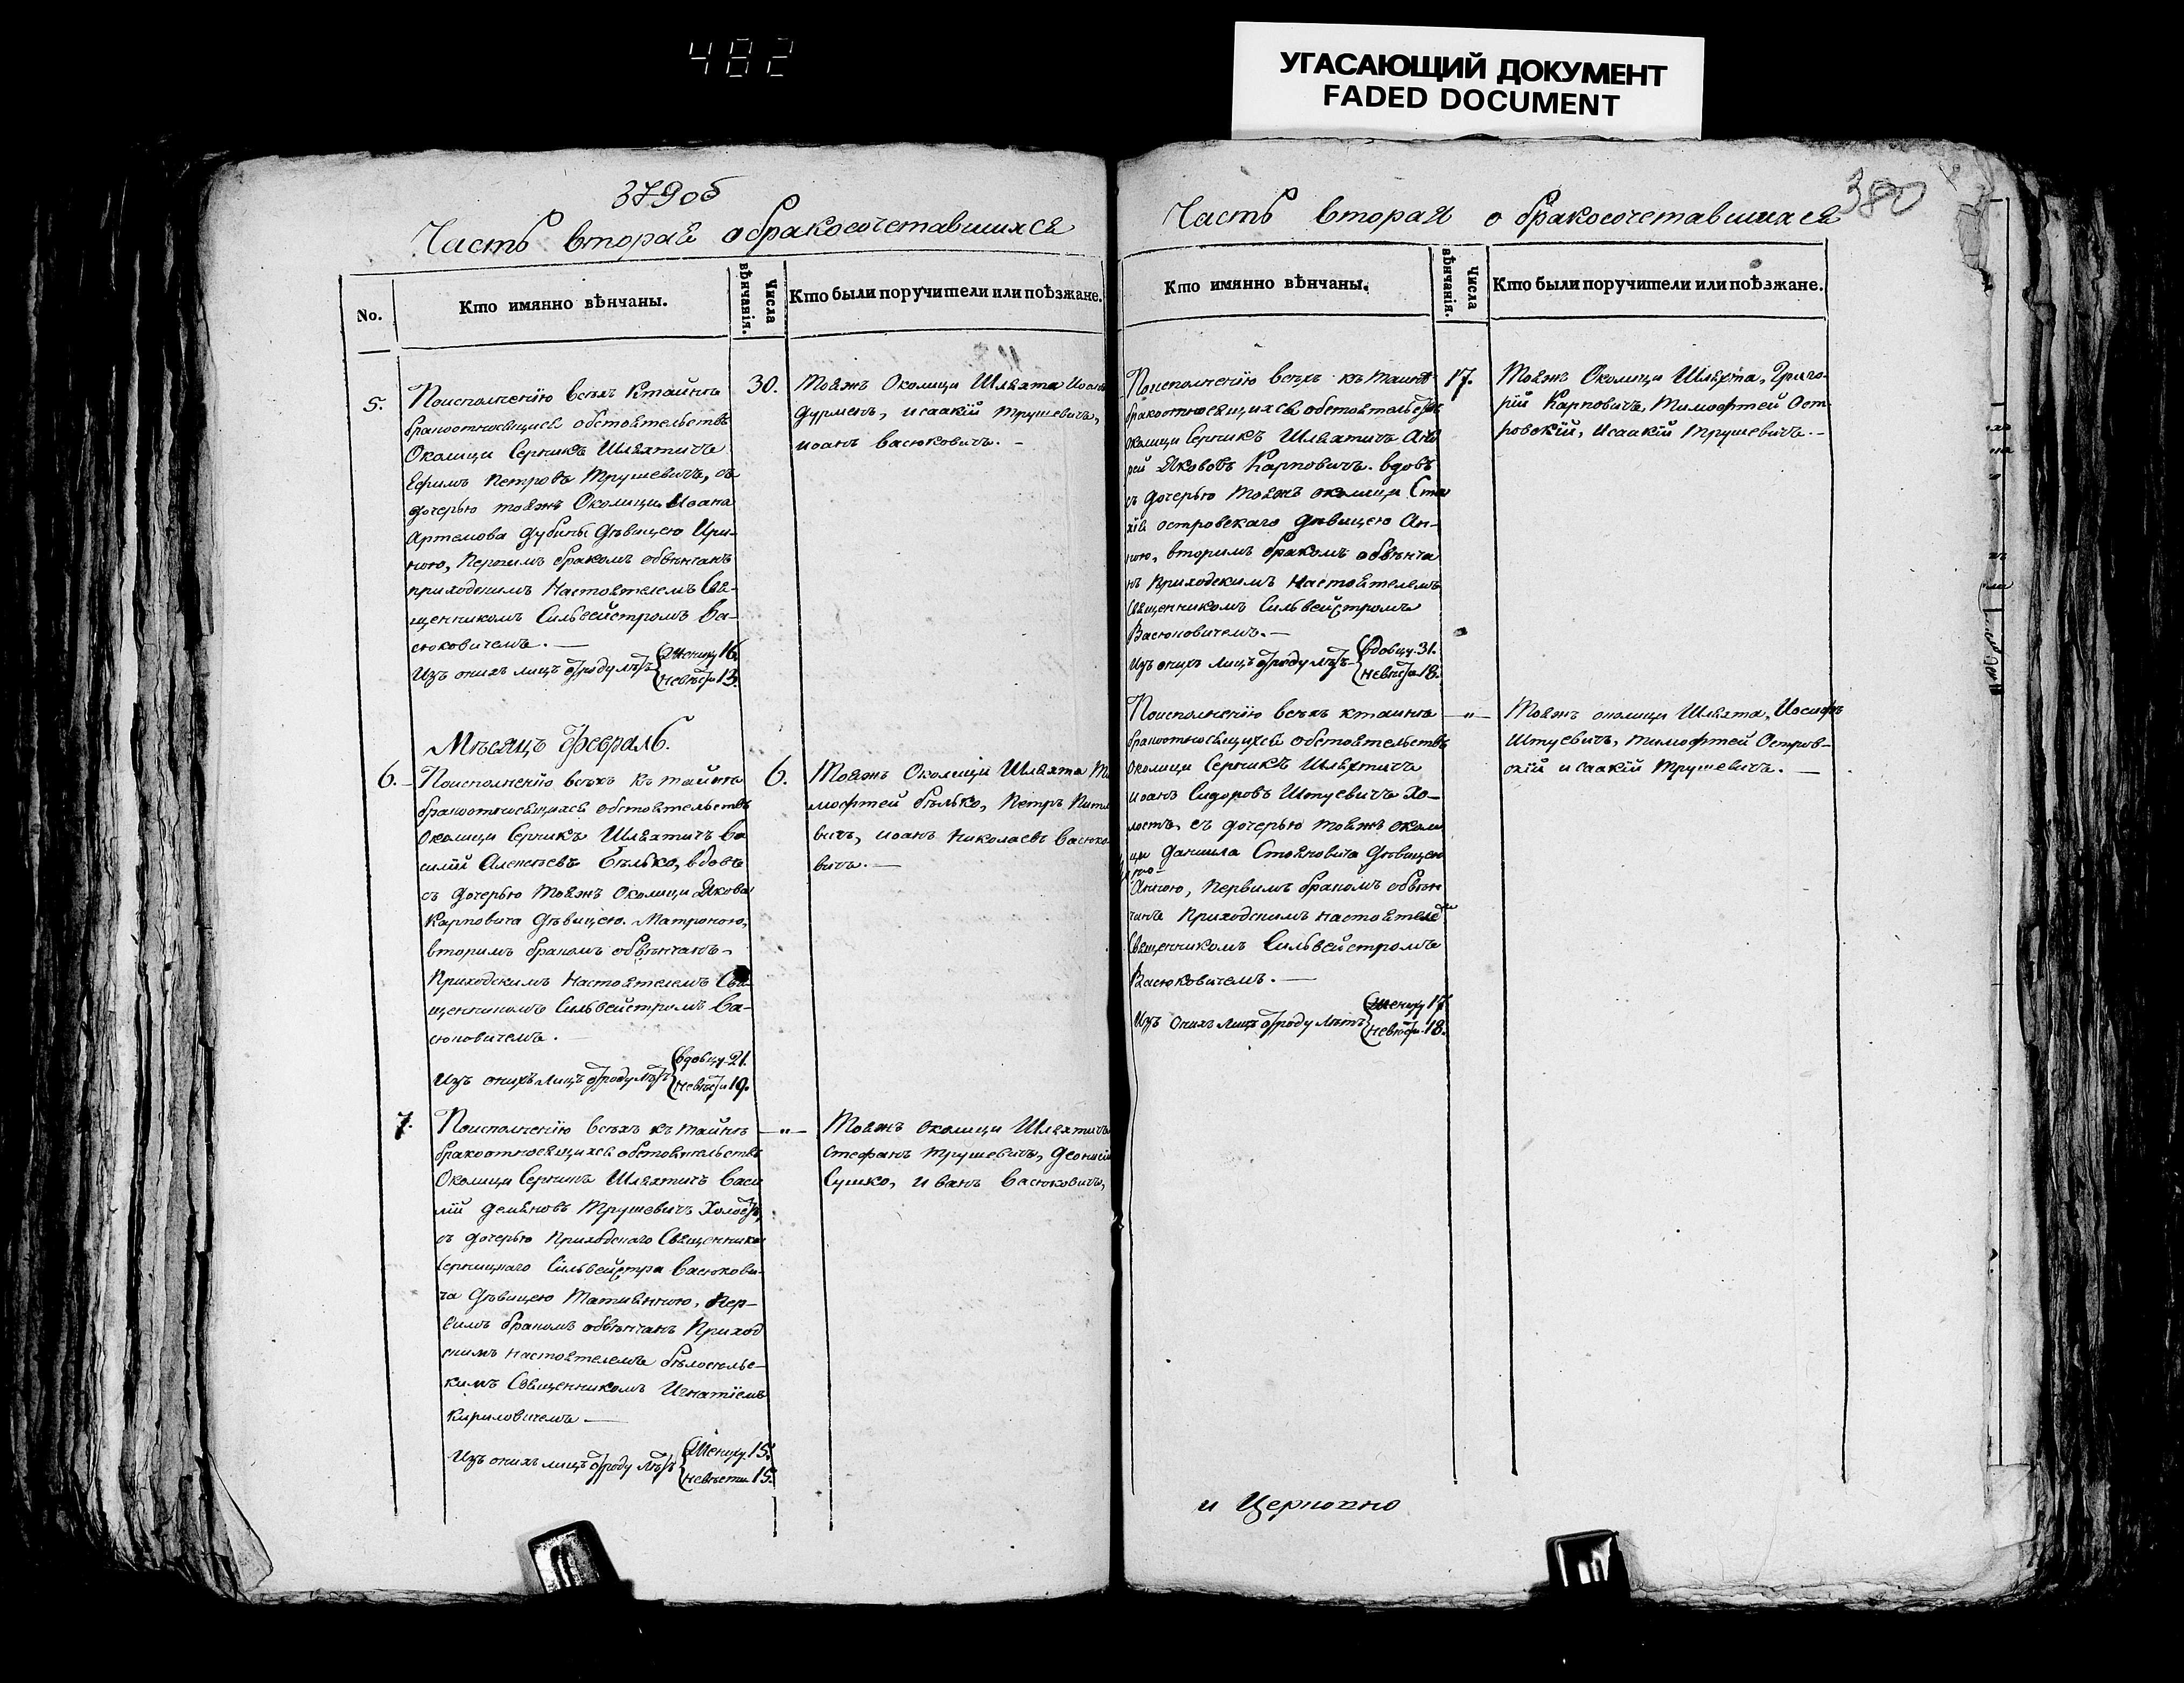 482
УГАСАЮЩИЙ ДОКУМЕНТ
FADED DOCUMENT
379об
Часть вторая о бракосочетавшихся
No.
Кто имянно вѣнчаны.
Числа вѣнчанія.
Кто были поручители или поѣзжане.
5.
Поисполненію всѣхъ Ктайнѣ
бракоотносящися обстоятельствъ
Околицы Серникъ Шляхтичъ
Ефимъ Петровъ Трушевичъ, съ
дочерью тояжъ Околицы Иоана
Артемова Дубины дѣвицею Ири-
ною, первимъ бракомъ обвѣнчанъ
приходскимъ Настоятелемъ Свя-
щенникомъ Сильвейстромъ Ва-
сюковичемъ. —
Изъ онихъ лицъ отроду лѣтъ
Жениху 16.
Невѣсти 13.
30.
Тояжъ Околицы Шляхта Иоанъ
Дурменъ, Исаакій Трушевичъ,
Иоанъ Васюковичъ. -
Мѣсяцъ Февраль.
6.
Поисполненію всѣхъ къ тайнѣ
бракоотносящихся обстоятельствъ
Околицы Серникъ Шляхтичъ Ва
силій Алексѣевъ Бѣлько, вдовъ
съ дочерью тояжъ Околицы Якова
Карповича дѣвицею Матроною,
вторимъ бракомъ обвѣнчанъ
Приходскимъ Настоятелемъ Свя-
щенникомъ Сильвейстромъ Ва-
сюковичемъ.
Изъ онихъ лицъ отроду лѣтъ
вдовцу 21.
Невѣсти 19.
6.
Тояжъ Околицы Шляхта Ти
мофтей Бѣлько, Петръ
вичъ, Иоанъ Николаевъ Васюко
вичъ. —
7.
Поисполненію всѣхъ къ тайнѣ
бракоотносящихся обстоятельствъ
Околицы Серникъ Шляхтичъ Васи
лій Демяновъ Трушевичъ Холостъ,
съ дочерью Приходскаго Священника
Серницкаго Сильвейстра Васюкови-
ча дѣвицею Татианною, Пер-
вимъ бракомъ обвѣнчанъ Приход
скимъ Настоятелемъ
кимъ Священникомъ Игнатіемъ
Кириловичемъ —
Изъ онихъ лицъ отроду лѣтъ
Жениху 15.
Невѣсти 15.
— " —
Тояжъ Околицы Шляхтичъ
Стефанъ Трушевичъ, Деонисій
Сушко, Иванъ Васюковичъ,
380
Часть вторая о бракосочетавшихся
Кто имянно вѣнчаны.
Числа вѣнчанія.
Кто были поручители или поѣзжане.
Поисполненію всѣхъ къ таинѣ
бракоотносящихся обстоятельствъ
околицы Серникъ Шляхтичъ Анд
рей Яковъ Карповичъ вдовъ
съ дочерью тояжъ околицы Ста
хія Островскаго дѣвицею Ан-
ною, вторимъ бракомъ обвѣнча
нъ Приходскимъ Настоятелемъ
Священникомъ Сильвейстромъ
Васюковичемъ. —
Изъ онихъ лицъ отроду лѣтъ
вдовцу 31.
Невѣста 18.
17.
Тояжъ Околицы Шляхта, Григо-
рій Карповичъ, Тимофтей Ост-
ровскій, Исаакій Трушевичъ. -
Поисполненію всѣхъ ктаинѣ
бракоотносящихся обстоятельствъ
околицы Серникъ Шляхтичъ
Иоанъ Сидоровъ Штуевичъ Хо-
лостъ, съ дочерью тояжъ околи
цы Данила Стояновича дѣвицею
Анною, Первимъ бракомъ обвѣн
чанъ Приходскимъ настоятелемъ
Священникомъ Сильвейстромъ
Васюковичемъ. —
Изъ онихъ лицъ отроду лѣтъ
Жениху 17.
Невѣсти 18.
— " —
Тояжъ околицы Шляхта, Иосифъ
Штуевичъ, Тимофтей Остров-
скій Исаакій Трушевичъ. —
и Церковно